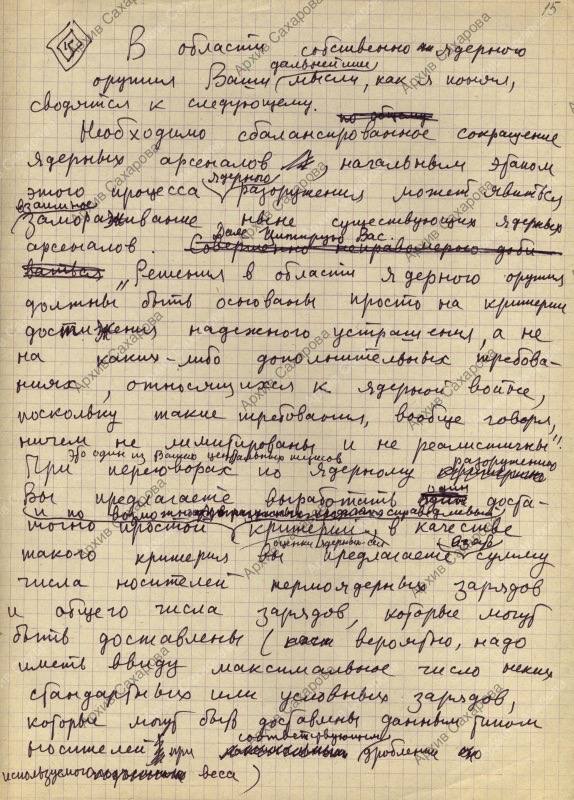 15
15
В области собственно ядерного
оружия Ваши дальнейшие мысли, как я понял,
сводятся к следующему.
Необходимо сбалансированное сокращение
ядерных арсеналов начальным этапом
этого процесса ядерного разоружения может явиться
взаимное замораживание ныне существующих ядерных
арсеналов. Далее цитирую Вас.
„Решения в области ядерного оружия
должны быть основаны просто на критерии
достижения надежного устрашения, а не
на каких-либо дополнительных требова-
ниях, относящихся к ядерной войне,
поскольку такие требования, вообще говоря,
ничем не лимитированы и не реалистичны".
Это один из Ваших центральных тезисов
При переговорах по ядерному разоружению
Вы предлагаете выработать один доста-
точно простой и по возможности справедливый
критерий оценки ядерных сил, в качестве
такого критерия Вы предлагаете взять сумму
числа носителей термоядерных зарядов
и общего числа зарядов, которые могут
быть доставлены (вероятно, надо
иметь ввиду максимальное число неких
стандартных или условных зарядов,
которые могут быть доставлены данным типом
носителей при соответствующем дроблении
используемого веса)
Архив Сахарова